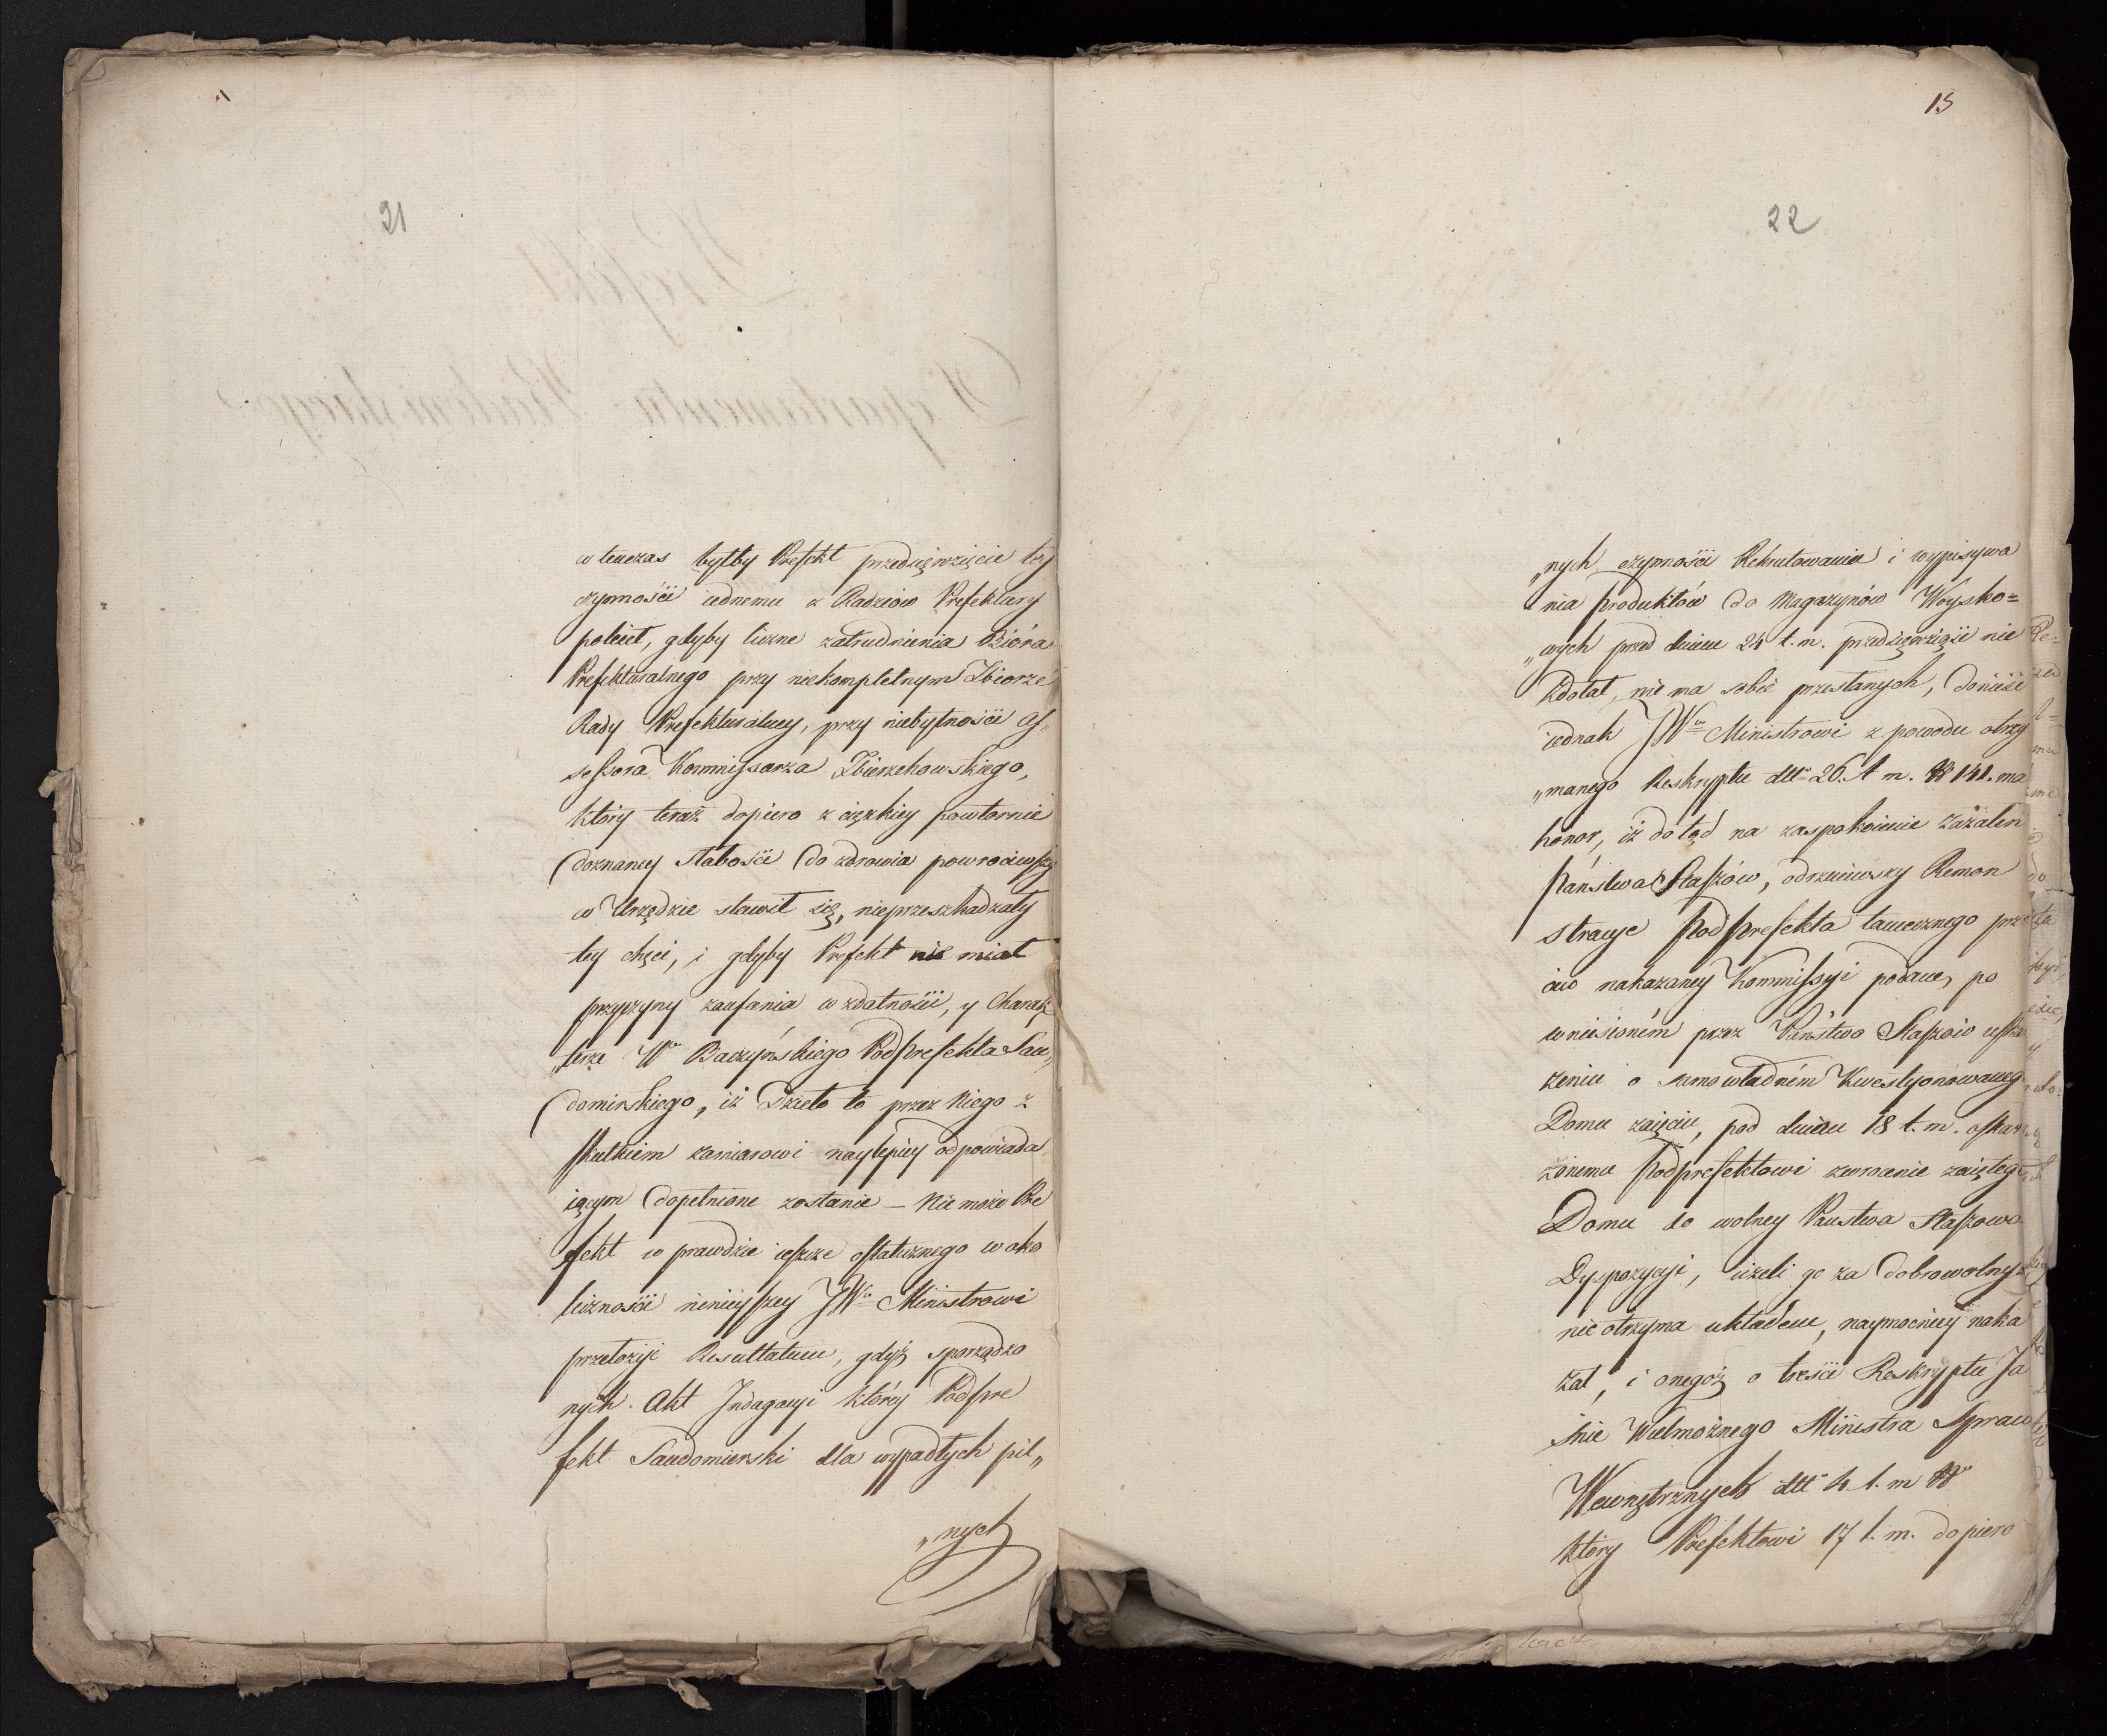 21
w tenczas byłby Prefekt przedsięwzięcie tey
czynności iednemu z Radzców Prefektury
polecił, gdyby liczne zatrudnienia Bióra
Prefekturalnego przy niekompletnym Zbiorze
Rady Prefekturalney, przy niebytności As„
sessora Kommissarza Zbierzchowskiego,
który teraz dopiero z ciężkiey powtornie
doznaney słabości do zdrowia powrociwszy
w Urzędzie stawił się, nieprzeszkadzały
tey chęci, i gdyby Prefekt nie miał
przyczyny zaufania w zdatności, y Charak„
„terze Wo Baczyńskiego Podprefekta San„
domirskiego, iż Dzieło to przez Niego z
skutkiem zamiarowi naylepiey odpowiada
iącym dopełnione zostanie — Nie może Pre
fekt w prawdzie ieszcze ostatecznego w oko
liczności ninieyszey JWu Ministrowi
przełożyć Resultatum, gdyż sporządzo
nych Akt Jndagacyi którey Podpre
fekt Sandomierski dla wypadłych pil„
„nych
15
22
„nych czynności Rekrutowania i wypisywa
nia produktów do Magazynów Woysko=
„wych przed dniem 24 t. m. przedsięwziąść nie
zdołał, nie ma sobie przesłanych, donieść
iednak JWu Ministrowi z powodu otrzy
„manego Reskryptu dtto 26. t m. 141. ma
honor, iż dotąd na zaspokoienie zażaleń
Państwa Staszów, odrzuciwszy Remon
stracye Podprefekta
ciw nakazaney Kommissyi podane, po
wniesioném przez Państwo Staszów
żeniu o samowładném Kwestyonowaneg
Domu zaięciu, pod dniem 18 t. m. oskar
żonemu Podprefektowi zwrocenie zaięteg
Domu do wolney Panstwa Staszowa
Dyspozycyi, ieżeli go za dobrowolnym
nie otrzyma układem, naymocniey naka
zał, i onegoż o treści Reskryptu Ja
śnie Wielmożnego Ministra Spraw
Wewnętrznych dtto 4 t. m
który Prefektowi 17 t. m. dopiero